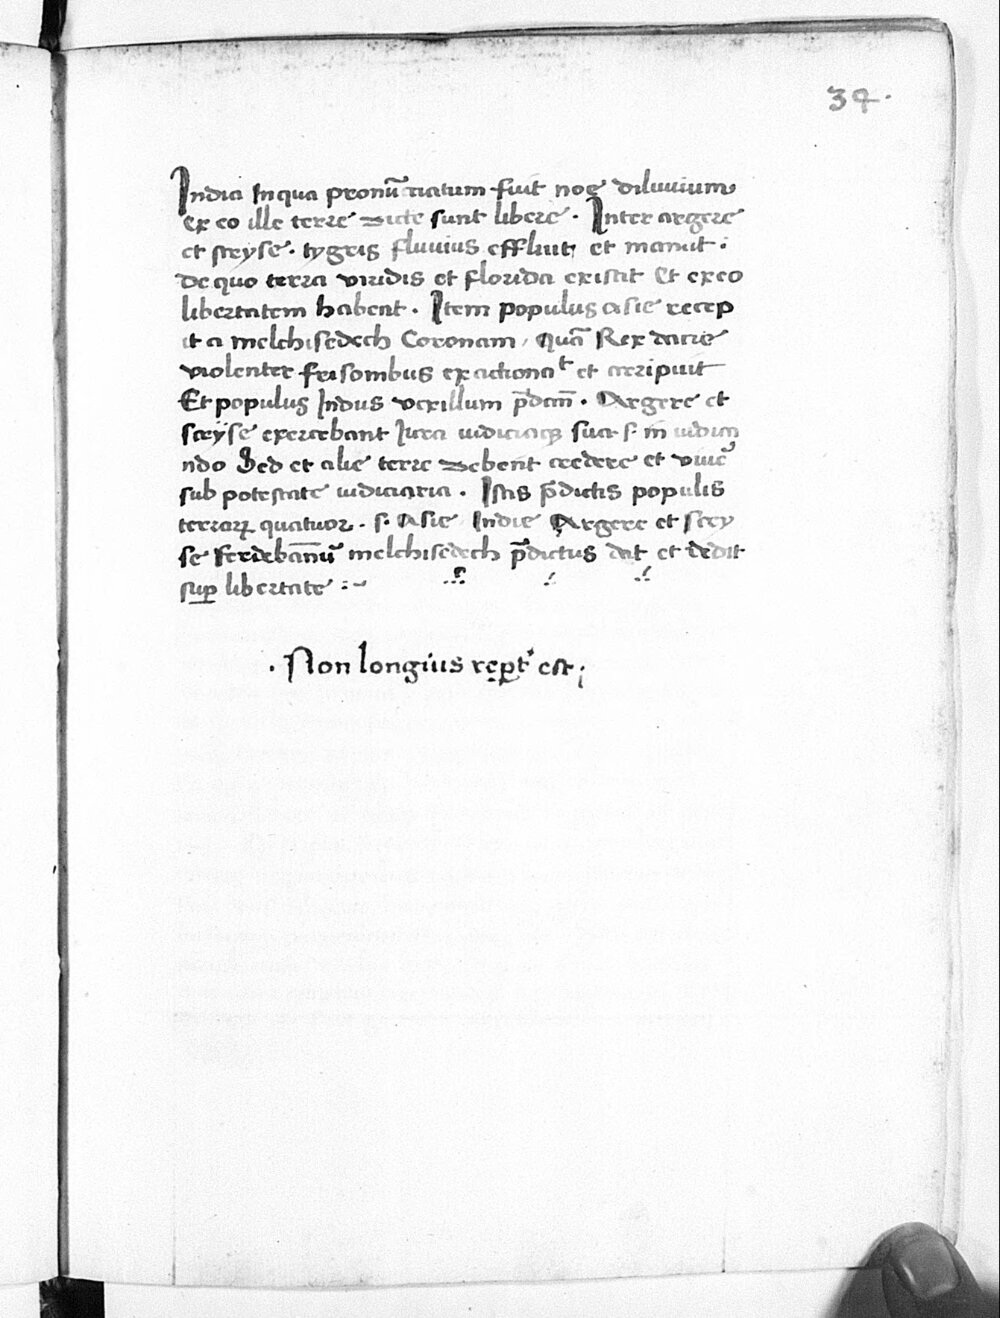 34.
India In qua pronū̄ciatum fuit noe diluuium
ex eo ille terre dicte sunt libere . Inter argere
et sceyse . tygris fluuius effluit et manat .
De quo terra viridis et florida existit Et ex eo
libertatem habent . Item populus asie recep
it a melchisedech Coronam , Quā Rex dacie
violenter frisombus exactionat et arripuit
Et populus Indus vexillum p̄dcm̄ . Argere et
sceyse exercebant Iura iudiciaq sua s. in iudica
ndo Sed et alie terre debent credere et
sub potestate iudiciaria . Istis p̄dictis populis
terraꝝ quatuor . s. Asie Indie Argere et scey
se melchisedech p̄dictus dat et dedit
suꝑ libertate :~
. Non longius reꝑt' est ;